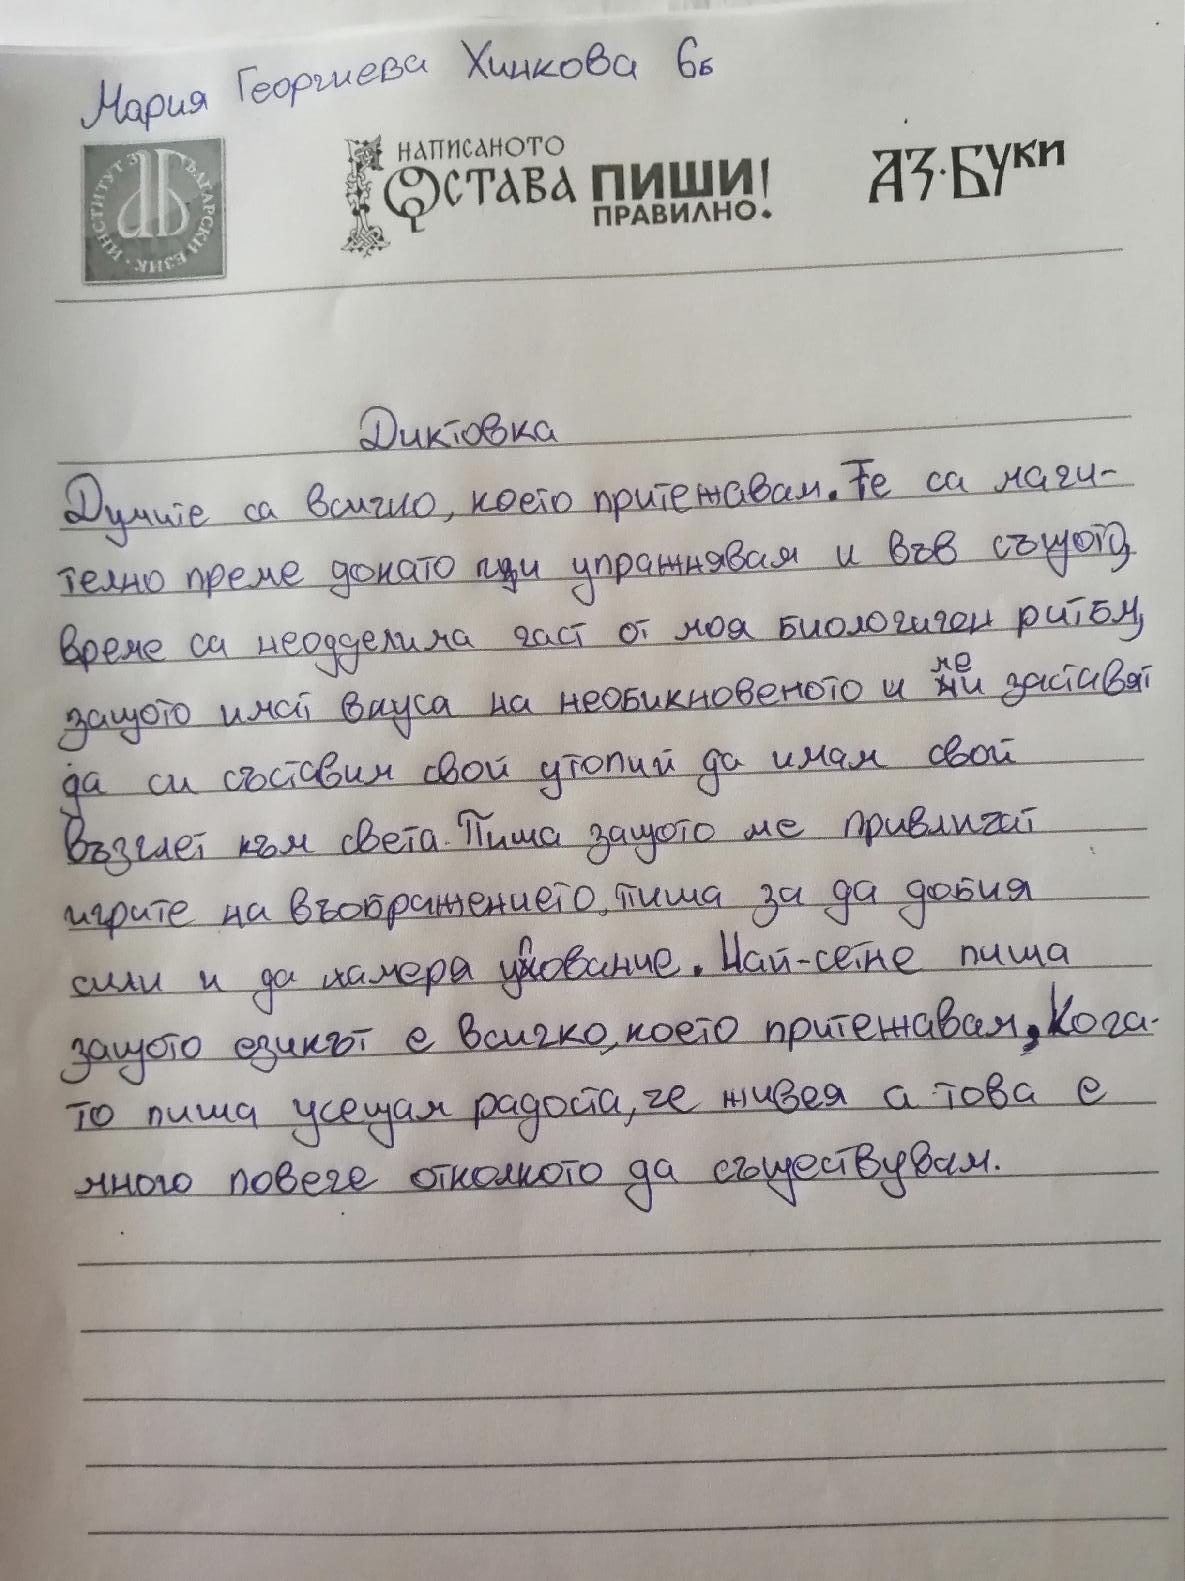 Мария Георгиева Хинкова 6б
ИНСТИТУТ ЗА БЪЛГАРСКИ ЕЗИК
НАПИСАНОТО ОСТАВА ПИШИ ПРАВИЛНО!
АЗ·БУКИ
Диктовка
Думите са всичко, което притежавам. Те са мачи-
телно преме докато ги упражнявам и във същото
време са неодделима част от моя биологичен ритъм,
защото имат вкуса на необикновеното и ме заставят
да си съставим свой утопий да имам свой
възглет към света. Пиша защото ме привличат
игрите на въображението, пиша за да добия
сили и да намеря упование. Най-сетне пиша
защото езикът е всичко, което притежавам, Кога-
то пиша усещам радоста, че живея а това е
много повече отколкото да съществувам.